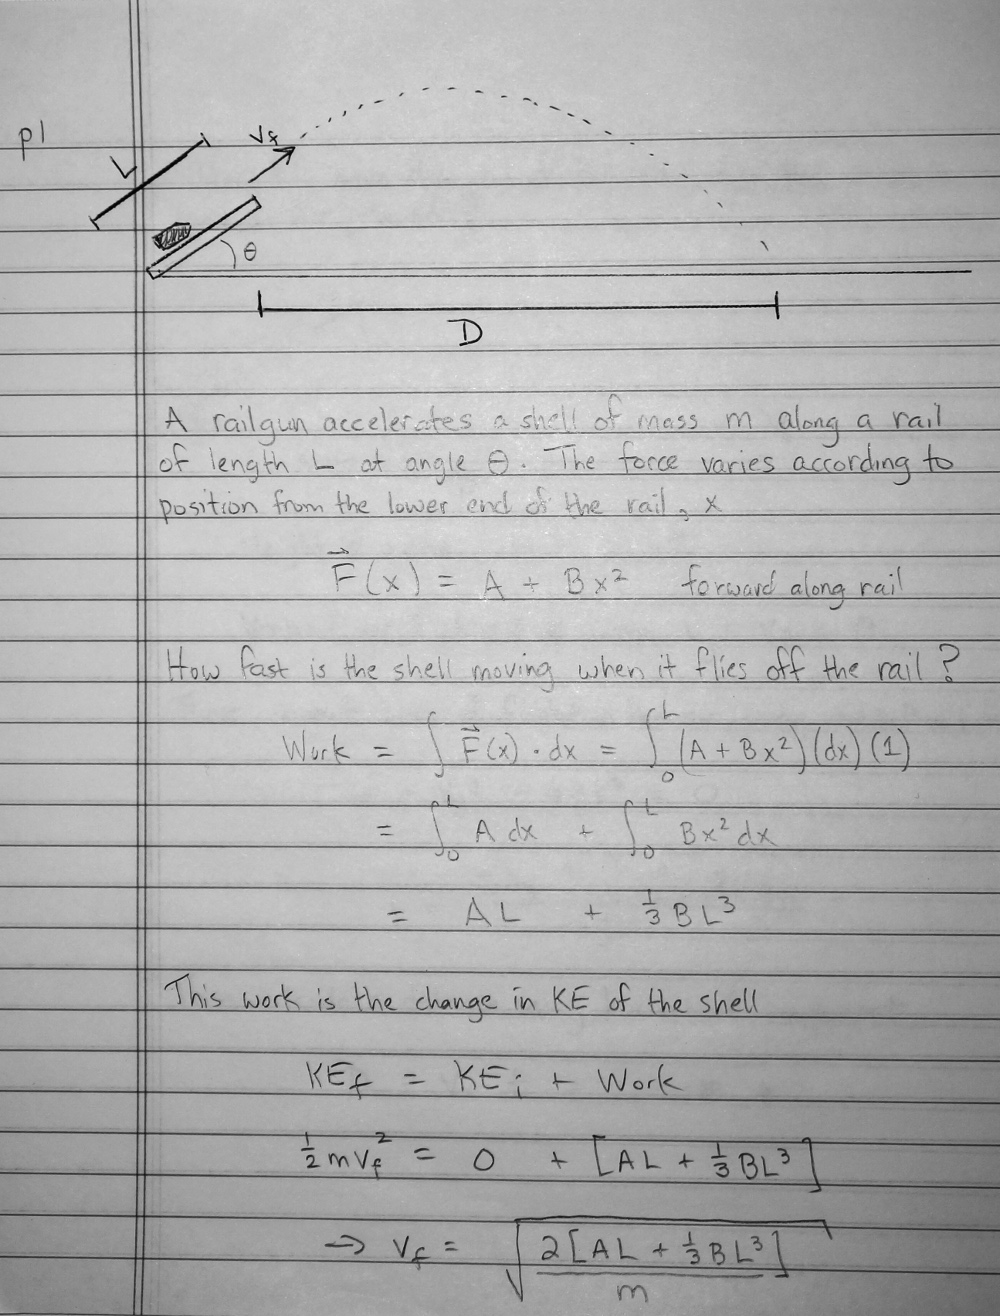 p1
L
Vf
θ
D
A railgun accelerates a shell of mass m along a rail
of length L at angle θ. The force varies according to
position from the lower end of the rail, x
F⃗(x) = A + Bx² forward along rail
How fast is the shell moving when it flies off the rail?
Work = ∫ F⃗(x) · dx = ∫₀ᴸ (A + Bx²)(dx)(1)
= ∫₀ᴸ A dx + ∫₀ᴸ Bx² dx
= AL + ⅓ BL³
This work is the change in KE of the shell
KEf = KEi + Work
½ mvf² = 0 + [AL + ⅓ BL³]
→ vf = √(2[AL + ⅓ BL³] / m)